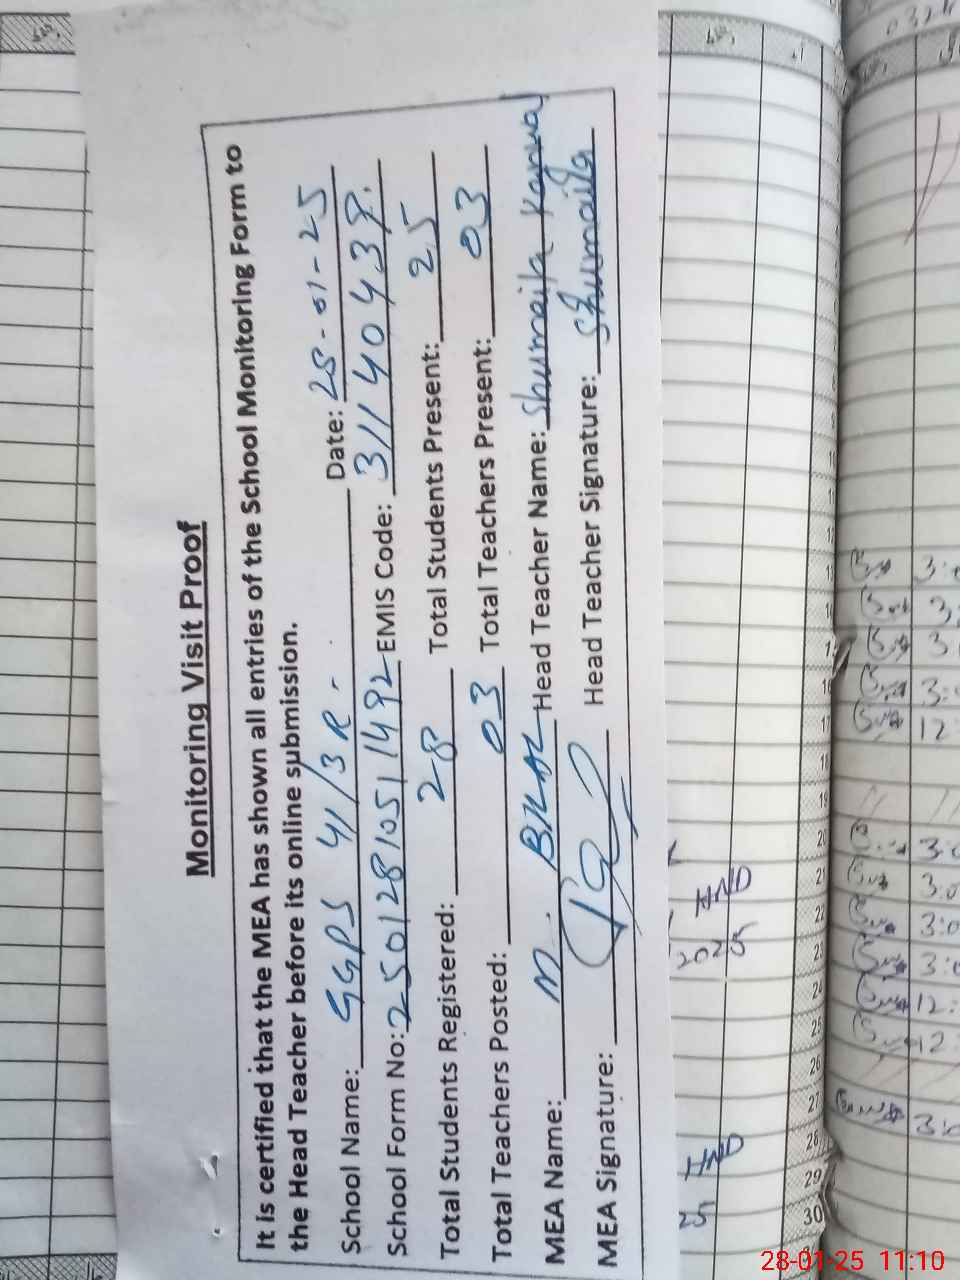 Monitoring Visit Proof
It is certified that the MEA has shown all entries of the School Monitoring Form to
the Head Teacher before its online submission.
School Name: GGPS 41/3R. Date: 28-01-25
School Form No: 25012810511492 EMIS Code: 31140438.
Total Students Registered: 28 Total Students Present: 25
Total Teachers Posted: 03 Total Teachers Present: 03
MEA Name: M. BILAL Head Teacher Name: Shumaila Kanwal
MEA Signature: Head Teacher Signature: Shumaila
HND
2025
HND
0324
12
13
16
17
19
20
21
22
23
24
25
26
27
28
29
30
28-01-25 11:10